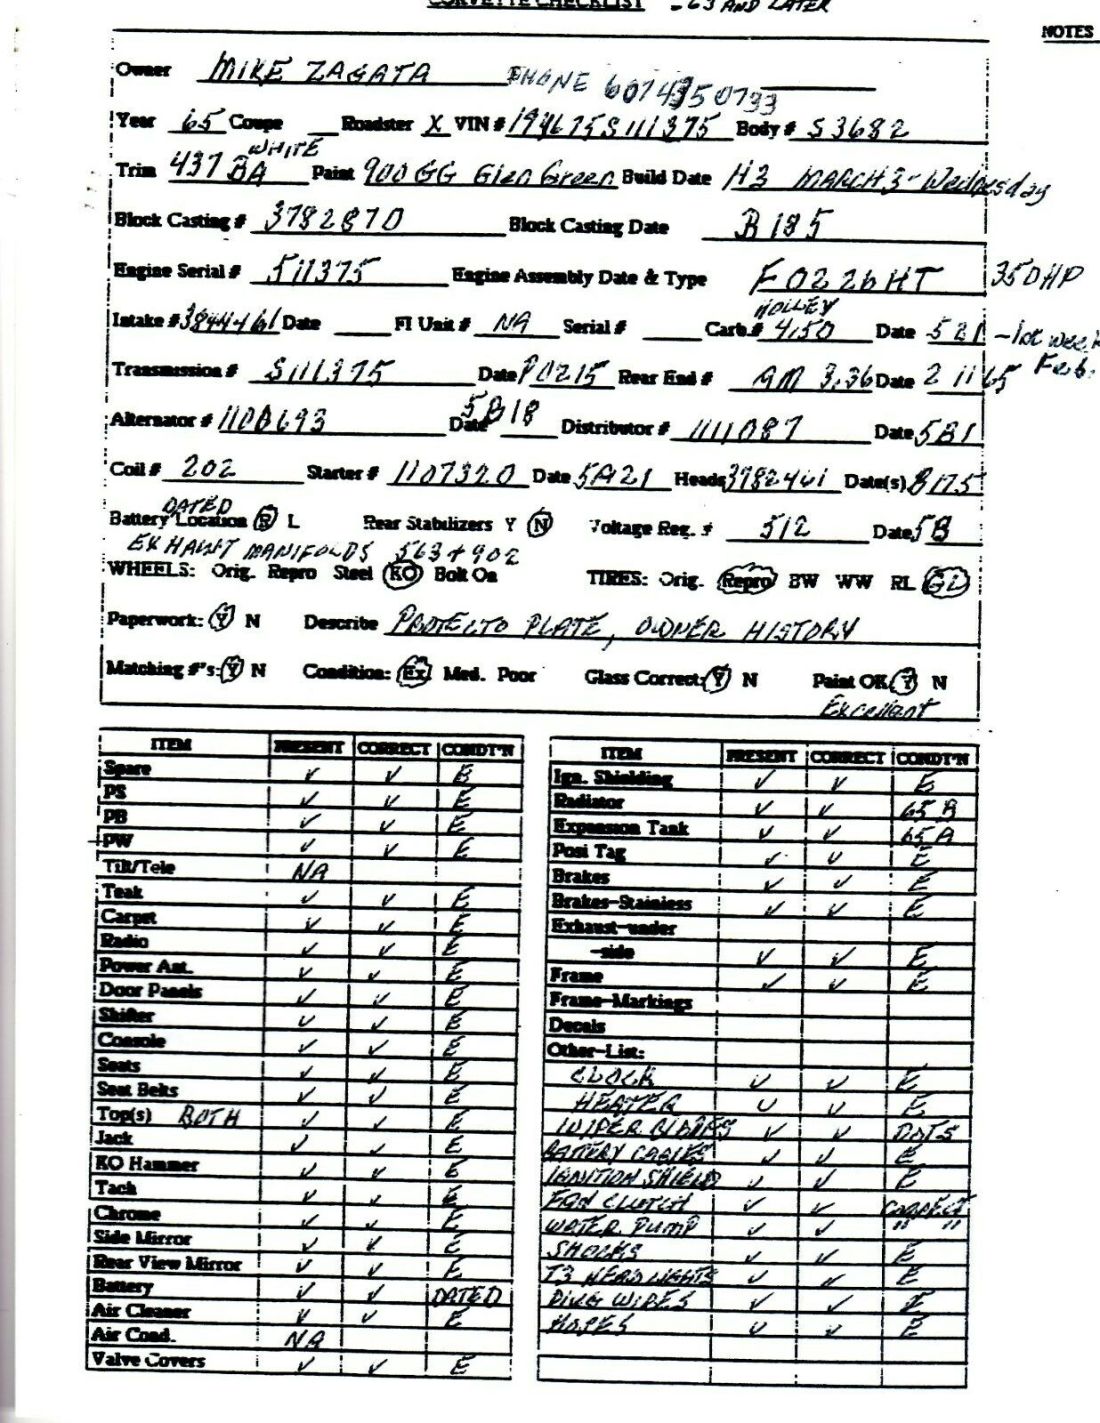 CORVETTE CHECKLIST - 63 AND LATER
NOTES
Owner MIKE ZAGATA PHONE
Year 65 Coupe Roadster X VIN # 194675S111375 Body # S3682
WHITE
Trim 437 BA Paint 900 GG Glen Green Build Date H3 MARCH 3-Wednesday
Block Casting # 3782870 Block Casting Date B 18 5
Engine Serial # 5111375 Engine Assembly Date & Type F0226HT 350HP
HOLLEY
Intake # 3844461 Date FI Unit # NA Serial # Carb.# Date 521 - 1st week
Feb.
Transmission # S111375 Date P0215 Rear End # AM 3.36 Date 2 11 65
Alternator # 1100693 Date 5B18 Distributor # 1111087 Date 5B1
Coil # 202 Starter # 1107320 Date 5A21 Heads 3782461 Date(s) B175
DATED
Battery Location R L Rear Stabilizers Y N Voltage Reg. # 512 Date 5B
EXHAUST MANIFOLDS 563 + 902
WHEELS: Orig. Repro Steel KO Bolt On TIRES: Orig. Repro BW WW RL GL
Paperwork: Y N Describe PROTECTO PLATE, OWNER HISTORY
Matching #'s: Y N Condition: Ex Med. Poor Glass Correct: Y N Paint OK: Y N
Excellent
ITEM PRESENT CORRECT CONDT'N
Spare ✓ ✓ E
PS ✓ ✓ E
PB ✓ ✓ E
PW ✓ ✓ E
Tilt/Tele NA
Teak ✓ ✓ E
Carpet ✓ ✓ E
Radio ✓ ✓ E
Power Ant. ✓ ✓ E
Door Panels ✓ ✓ E
Shifter ✓ ✓ E
Console ✓ ✓ E
Seats ✓ ✓ E
Seat Belts ✓ ✓ E
Top(s) BOTH ✓ ✓ E
Jack ✓ ✓ E
KO Hammer ✓ ✓ E
Tach ✓ ✓ E
Chrome ✓ ✓ E
Side Mirror ✓ ✓ E
Rear View Mirror ✓ ✓ E
Battery ✓ ✓ DATED
Air Cleaner ✓ ✓ E
Air Cond. NA
Valve Covers ✓ ✓ E
ITEM PRESENT CORRECT CONDT'N
Ign. Shielding ✓ ✓ E
Radiator ✓ ✓ 65 B
Expansion Tank ✓ ✓ 65 A
Posi Tag ✓ ✓ E
Brakes ✓ ✓ E
Brakes-Stainless ✓ ✓ E
Exhaust-under
-side ✓ ✓ E
Frame ✓ ✓ E
Frame-Markings
Decals
Other-List:
CLOCK ✓ ✓ E
HEATER ✓ ✓ E
WIPER BLADES ✓ ✓ DOTS
BATTERY CABLES ✓ ✓ E
IGNITION SHIELD ✓ ✓ E
FAN CLUTCH ✓ ✓ CORRECT
WATER PUMP ✓ ✓ " "
SHOCKS ✓ ✓ E
T3 HEADLIGHTS ✓ ✓ E
PLUG WIRES ✓ ✓ E
HOSES ✓ ✓ E